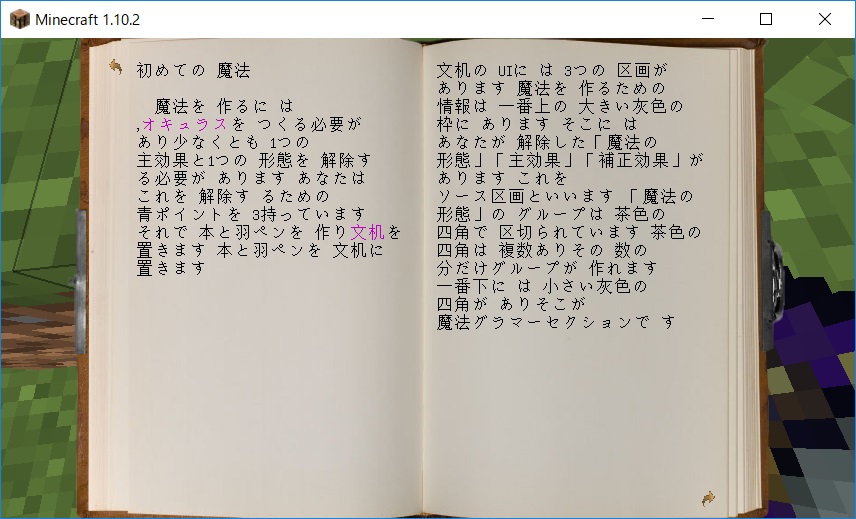 Minecraft 1.10.2
初めての 魔法
魔法を 作るに は
,オキュラスを つくる必要が
あり少なくとも 1つの
主効果と1つの 形態を 解除す
る必要が あります あなたは
これを 解除す るための
青ポイントを 3持っています
それで 本と羽ペンを 作り文机を
置きます 本と羽ペンを 文机に
置きます
文机の UIに は 3つの 区画が
あります 魔法を 作るための
情報は 一番上の 大きい灰色の
枠に あります そこに は
あなたが 解除した「魔法の
形態」「主効果」「補正効果」が
あります これを
ソース区画といいます 「魔法の
形態」の グループは 茶色の
四角で 区切られています 茶色の
四角は 複数ありその 数の
分だけグループが 作れます
一番下に は 小さい灰色の
四角が ありそこが
魔法グラマーセクションで す